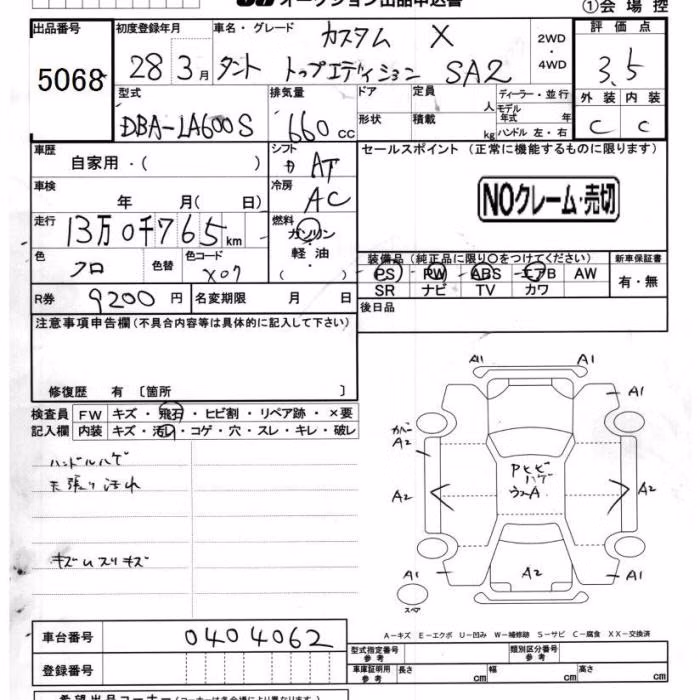 オークション出品申込書
①会場控
出品番号 初度登録年月 車名・グレード 2WD・4WD 評価点
5068 28 3月 カスタム X
タント トップエディション SA2 3.5
型式 排気量 ドア 定員 人 ディーラー・並行 外装 内装
DBA-LA600S 660 cc 形状 積載 kg モデル年式 年 ハンドル 左・右 C C
車歴 シフト セールスポイント (正常に機能するものに限ります)
自家用・( ) F AT
車検 冷房 NOクレーム・売切
年 月( 日) AC
走行 燃料
13万0千765km ガソリン・軽油・( )
色 色替 色コード 装備品 (純正品に限り○をつけてください) 新車保証書
クロ X07 PS PW ABS エアB AW 有・無
SR ナビ TV カワ
R券 9200円 名変期限 月 日 後日品
注意事項申告欄 (不具合内容等は具体的に記入して下さい)
修復歴 有 〔箇所 〕
検査員 FW キズ・飛石・ヒビ割・リペア跡・×要
記入欄 内装 キズ・汚レ・コゲ・穴・スレ・キレ・破レ
ハンドルハゲ
天張り汚れ
キズ
スリキズ
A1 A1
A1
カバー
A2
Pヒビ
ハゲ
A2 A2
A2
A1 A1
スペア
A-キズ E-エクボ U-凹み W-補修跡 S-サビ C-腐食 XX-交換済
車台番号 0404062
型式指定番号 参考 類別区分番号 参考
登録番号
車庫証明用 参考 長さ cm 幅 cm 高さ cm
希望出品コーナー (コーナーは各会場により異なります)